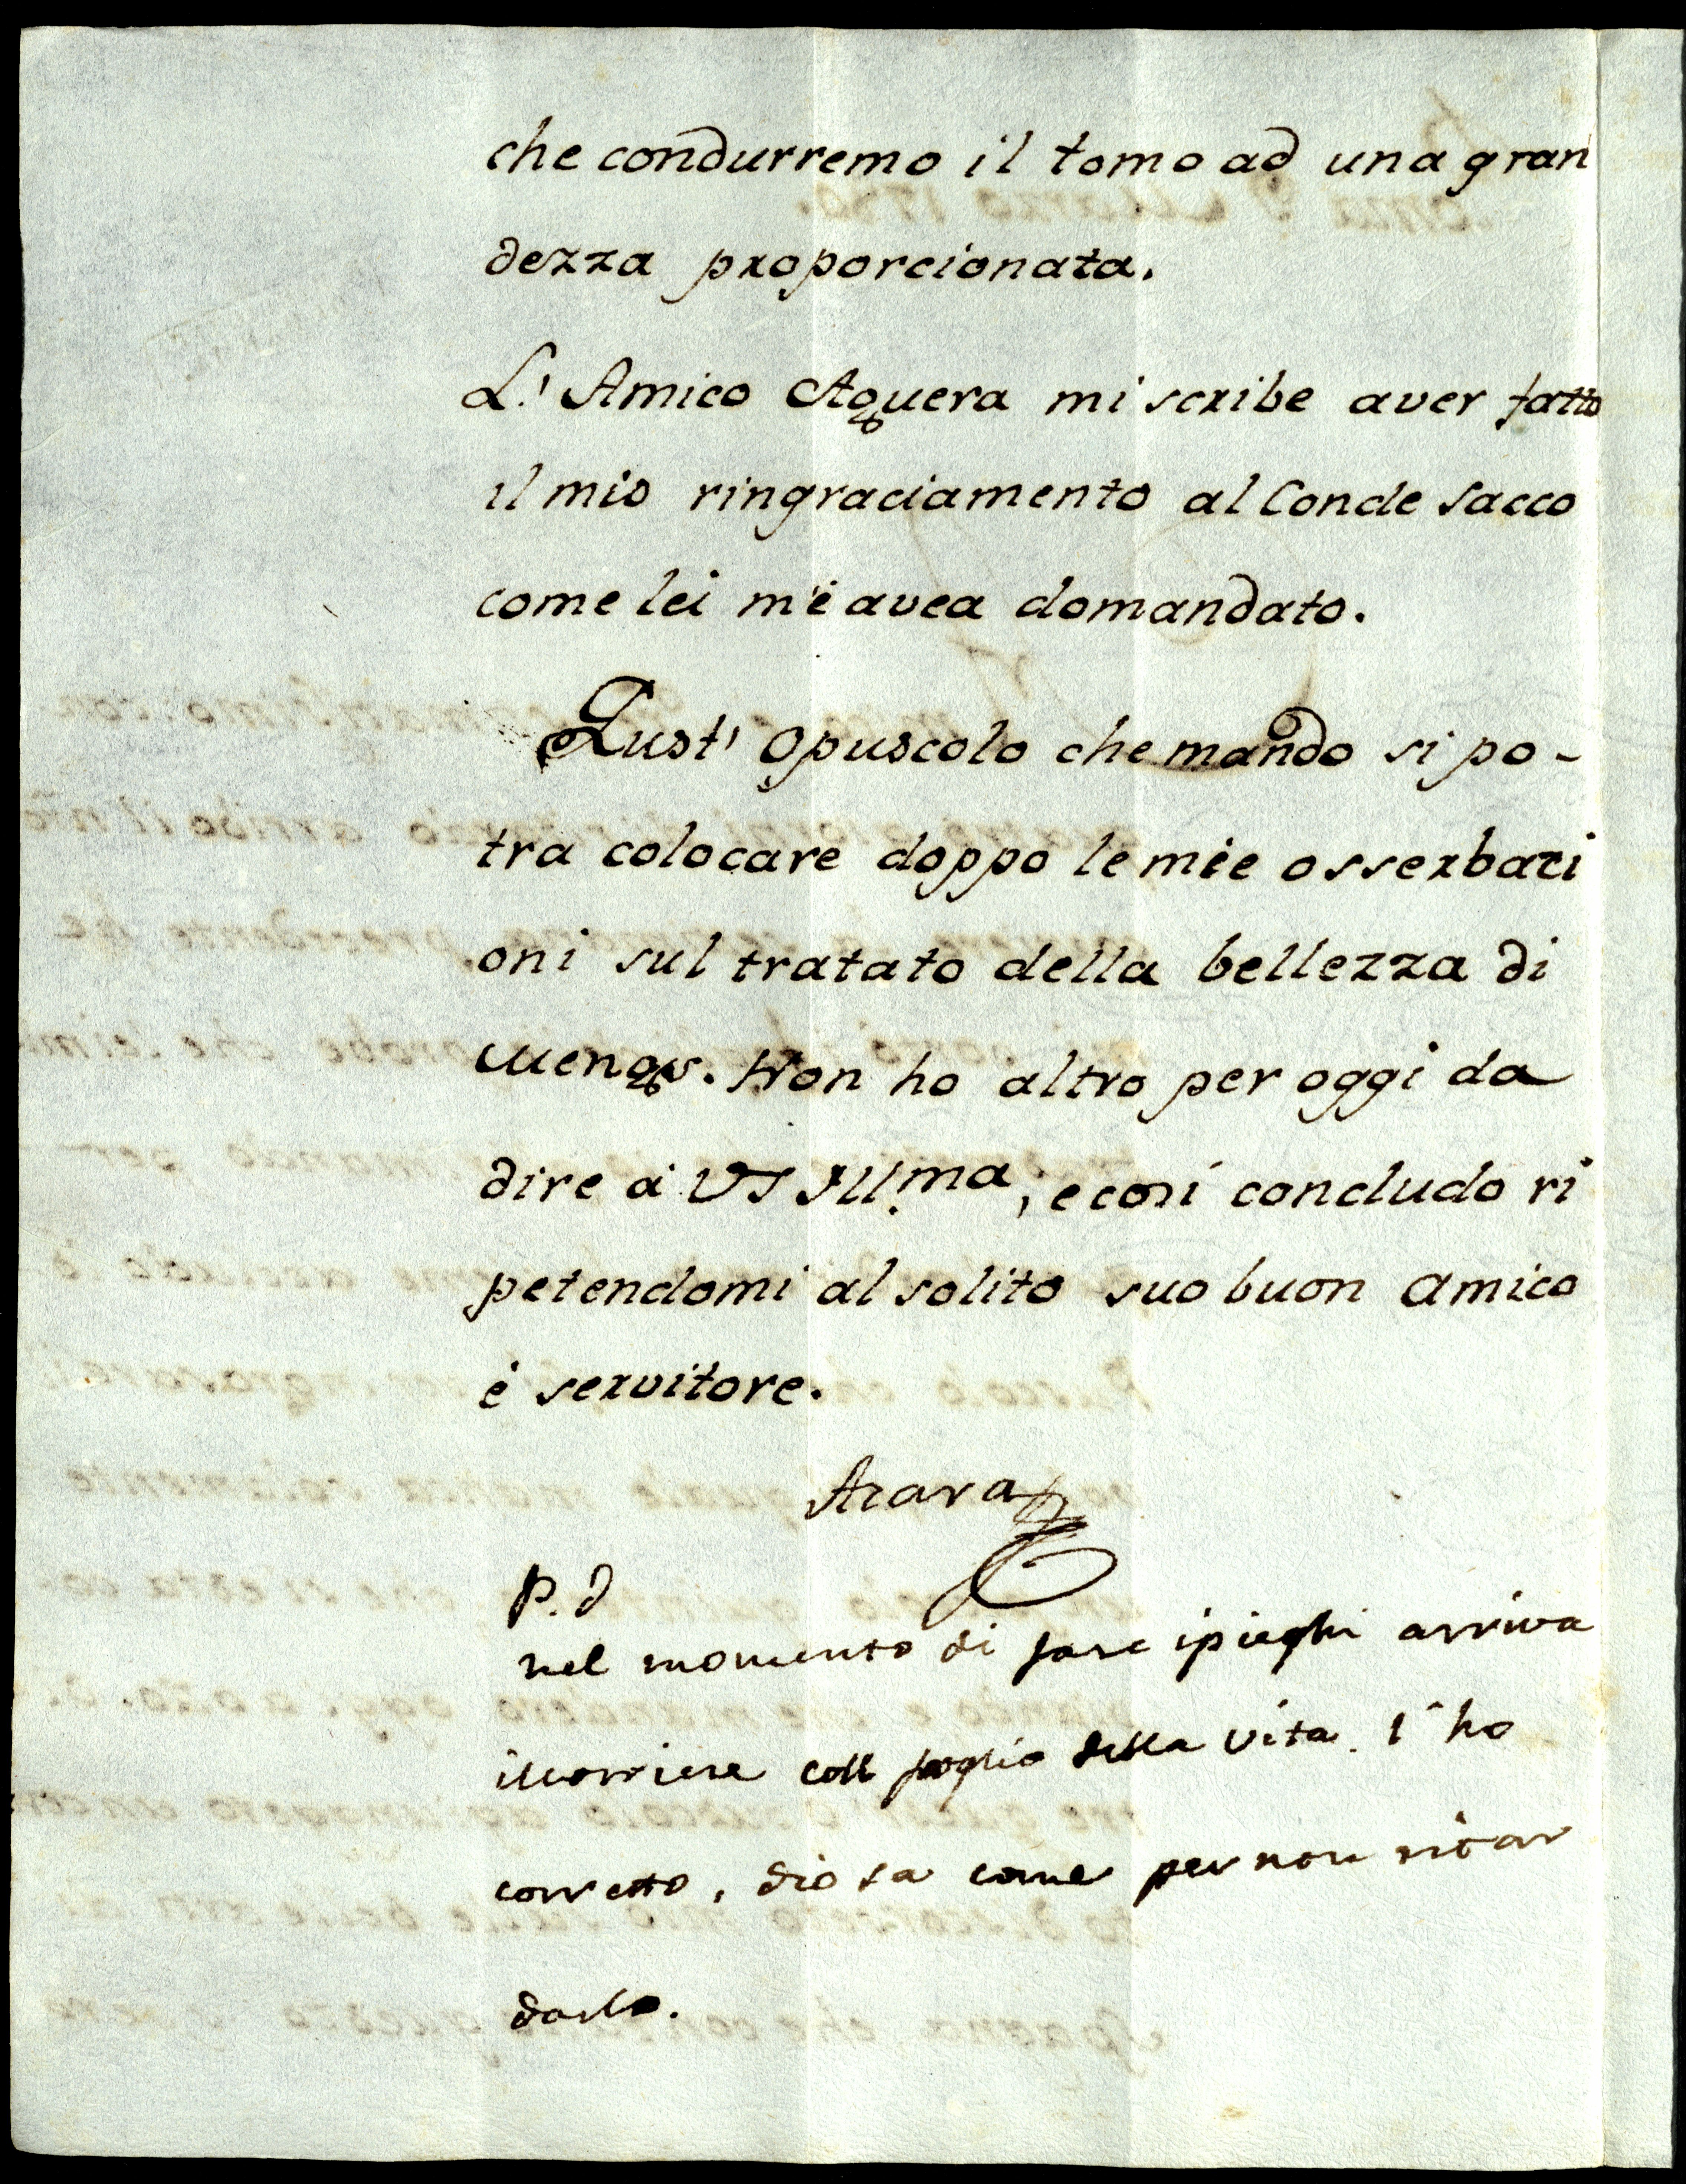 che condurremo il tomo ad una gran
dezza proporcionata.
L' Amico Aguera mi scribe aver fatto
il mio ringraciamento al Conde Sacco
come lei m'è avea domandato.
Qust' opuscolo che mando si po-
tra colocare doppo le mie osserbazi
oni sul tratato della bellezza di
Mengs. Non ho altro per oggi da
dire à VS Ill.ma; e cosi concludo ri
petendomi al solito suo buon amico
è servitore.
Azara
P. d
nel momento di fare i pieghi arriva
il corriere coll foglio della vita. l'ho
corretto, dio sa come per non ritar
darlo.